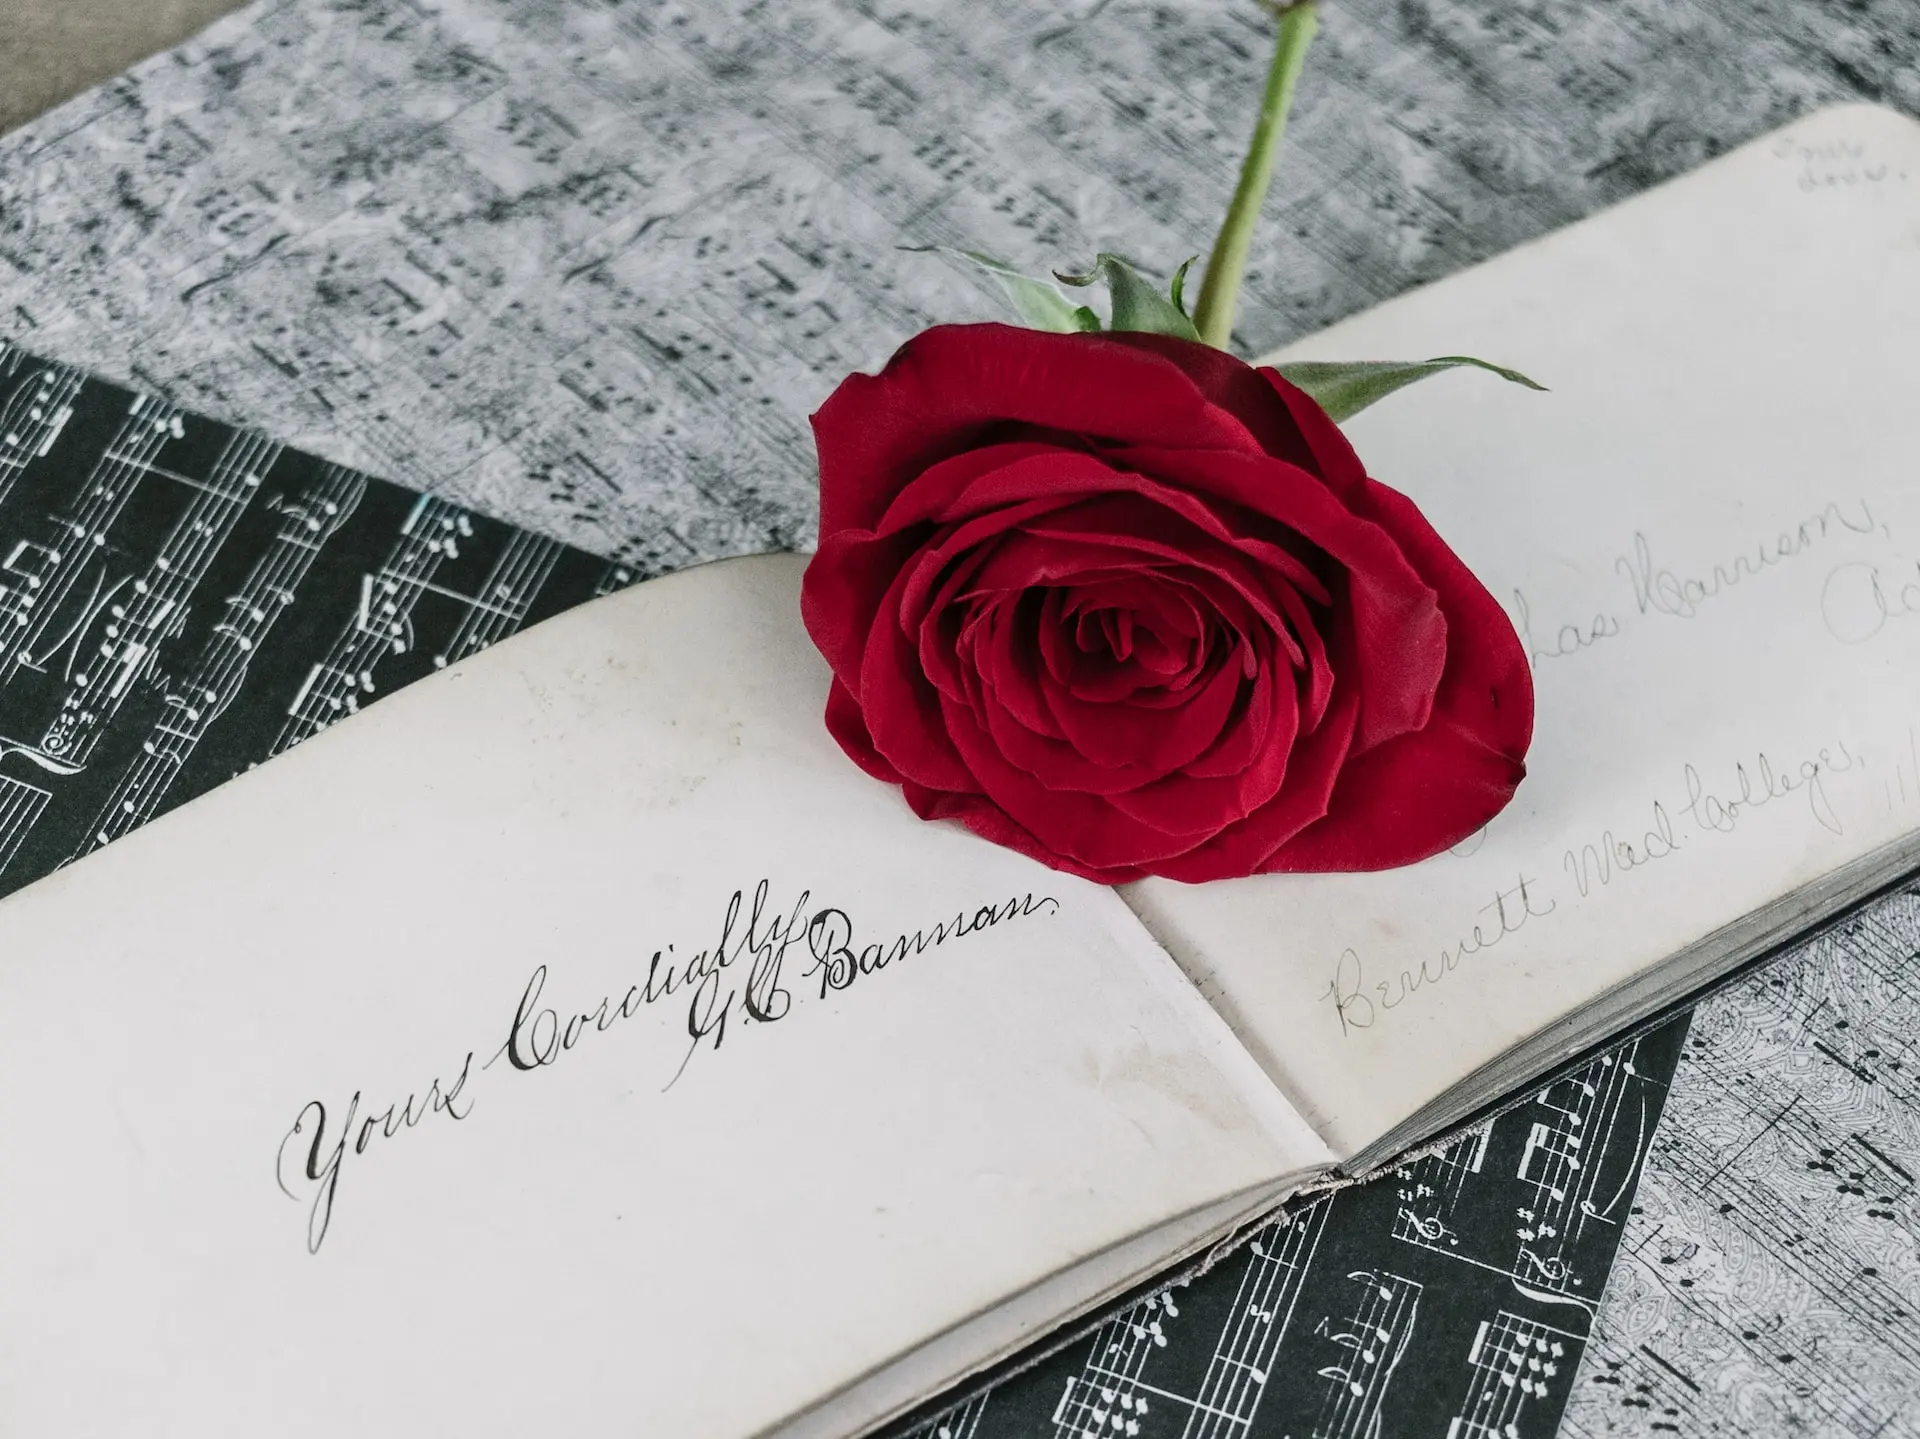 Yours Cordially
G.C. Bannan.
Harrison,
Bennett Med. College,